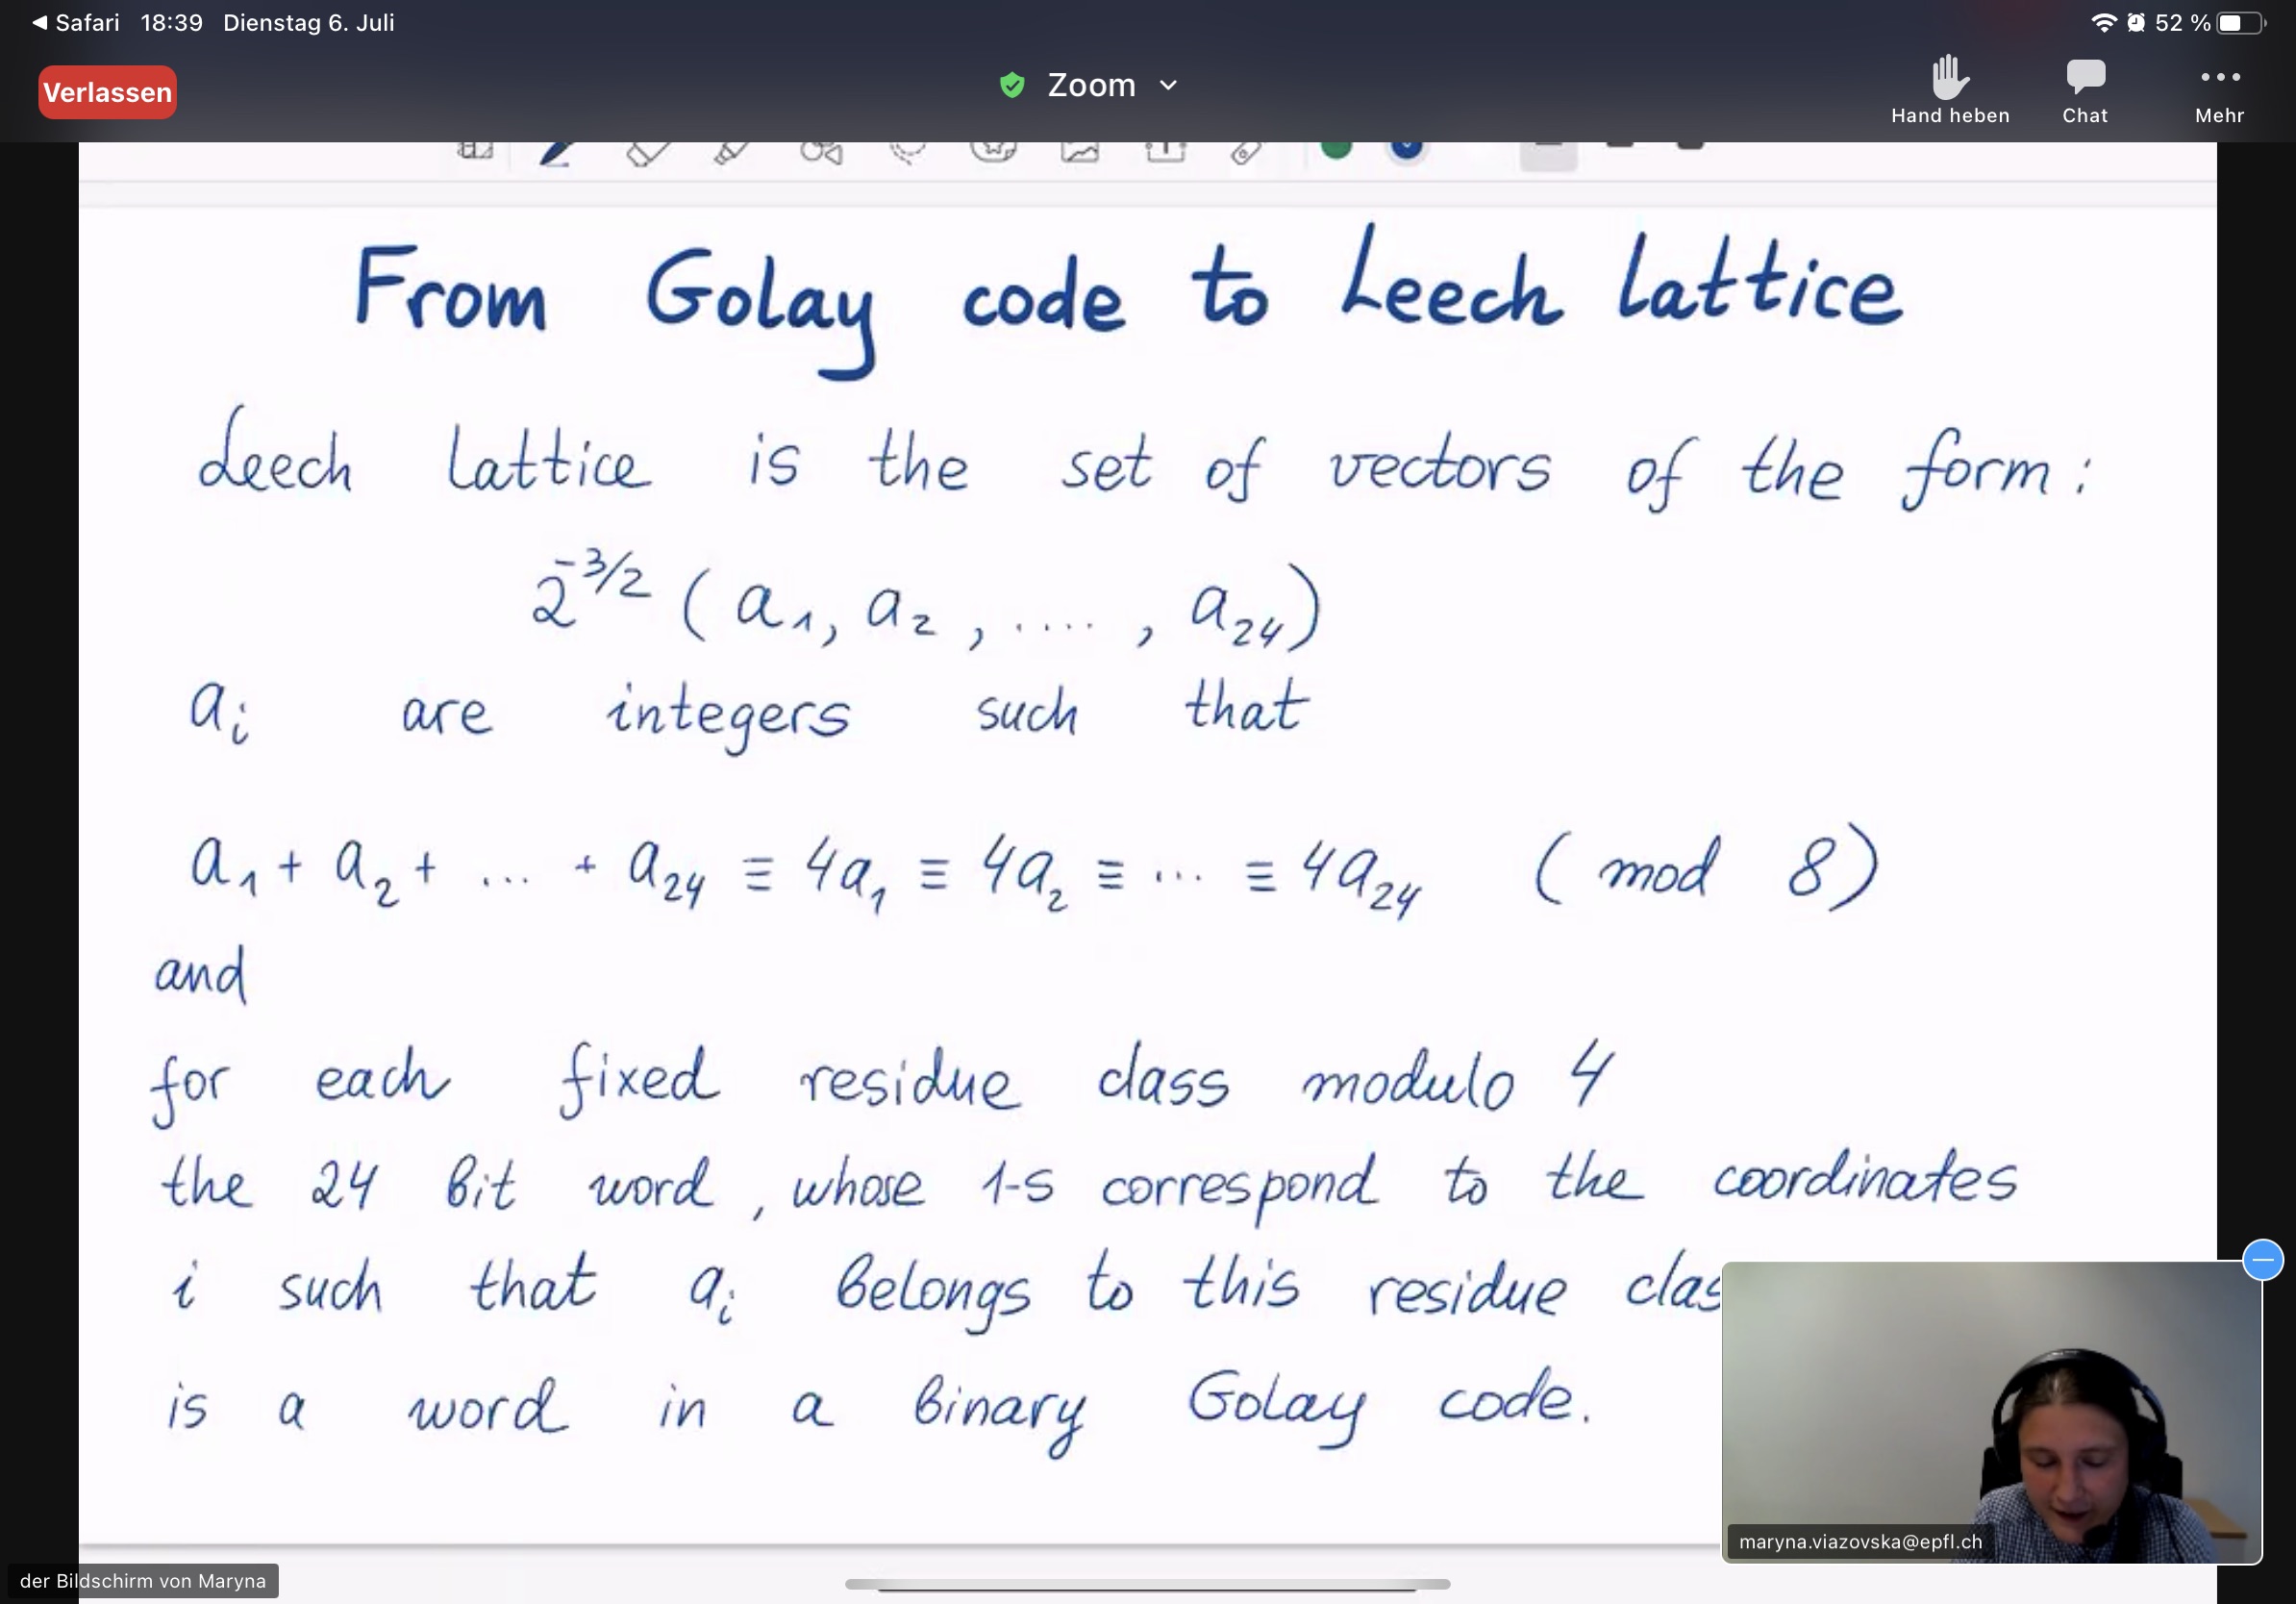 Safari 18:39 Dienstag 6. Juli 52 %
Verlassen
Zoom
Hand heben Chat Mehr
From Golay code to Leech lattice
Leech lattice is the set of vectors of the form:
2^{-3/2} (a_1, a_2, ...., a_{24})
a_i are integers such that
a_1 + a_2 + ... + a_{24} ≡ 4a_1 ≡ 4a_2 ≡ ... ≡ 4a_{24} (mod 8)
and
for each fixed residue class modulo 4
the 24 bit word, whose 1-s correspond to the coordinates
i such that a_i belongs to this residue clas
is a word in a binary Golay code.
maryna.viazovska@epfl.ch
der Bildschirm von Maryna